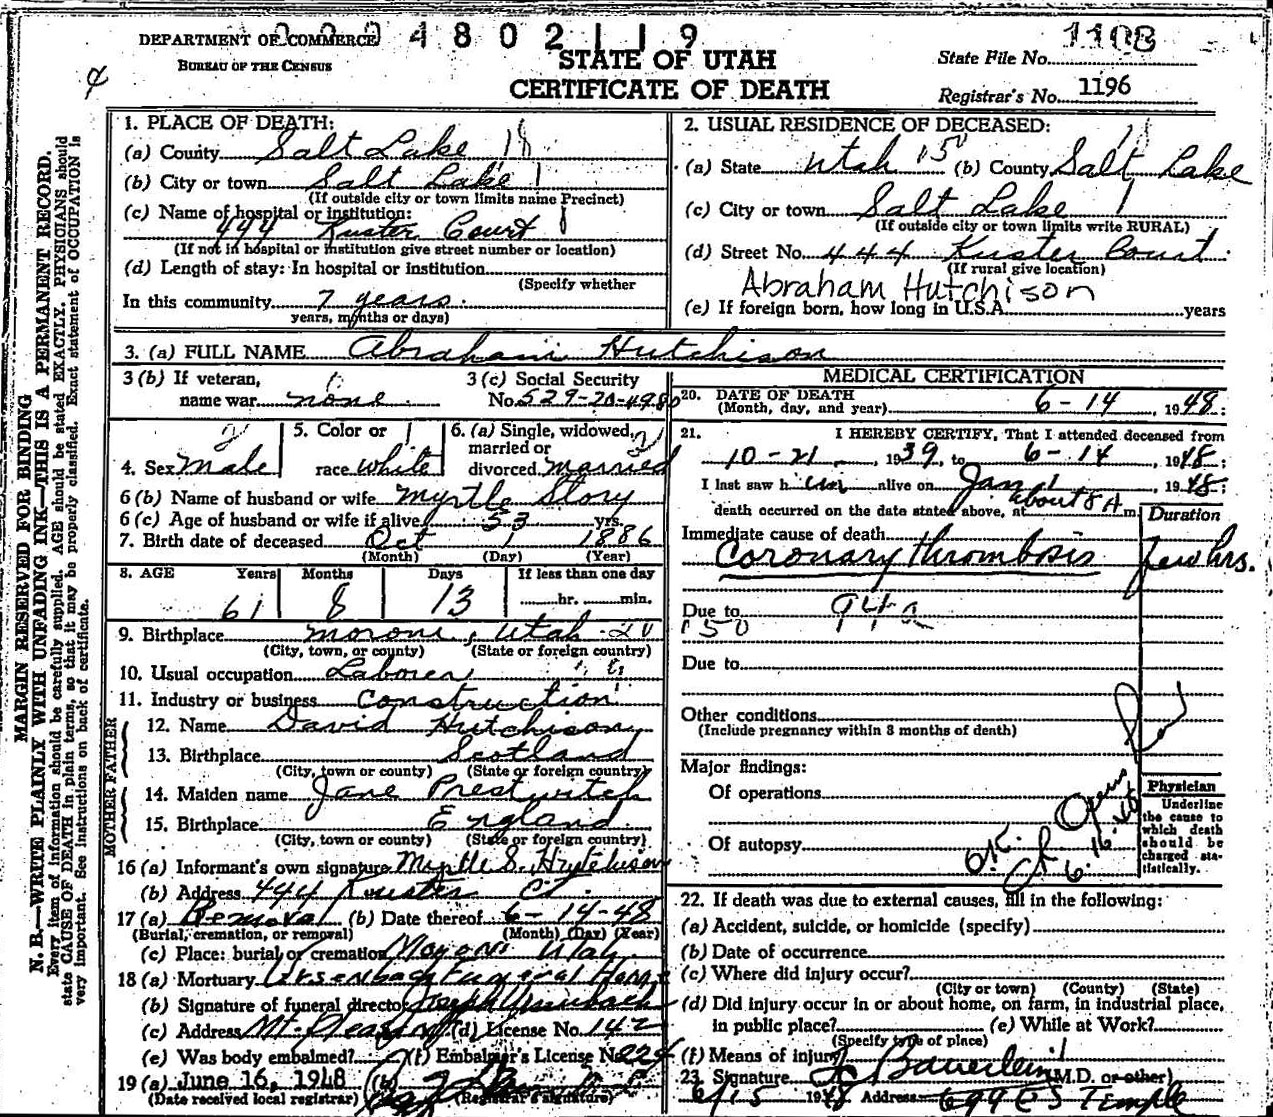 DEPARTMENT OF COMMERCE
BUREAU OF THE CENSUS
4802119
STATE OF UTAH
CERTIFICATE OF DEATH
State File No. 1108
Registrar's No. 1196
MARGIN RESERVED FOR BINDING
N. B.—WRITE PLAINLY WITH UNFADING INK—THIS IS A PERMANENT RECORD.
Every item of information should be carefully supplied. AGE should be stated EXACTLY. PHYSICIANS should
state CAUSE OF DEATH in plain terms, so that it may be properly classified. Exact statement of OCCUPATION is
very important. See instructions on back of certificate.
1. PLACE OF DEATH:
(a) County Salt Lake 18
(b) City or town Salt Lake 1
(If outside city or town limits name Precinct)
(c) Name of hospital or institution:
444 Kuster Court
(If not in hospital or institution give street number or location)
(d) Length of stay: In hospital or institution
(Specify whether
In this community 7 years.
years, months or days)
2. USUAL RESIDENCE OF DECEASED:
(a) State Utah 150 (b) County Salt Lake
(c) City or town Salt Lake 1
(If outside city or town limits write RURAL)
(d) Street No. 444 Kuster Court
(If rural give location)
Abraham Hutchison
(e) If foreign born, how long in U.S.A. years
3. (a) FULL NAME Abraham Hutchison
3 (b) If veteran,
name war none
3 (c) Social Security
No. 529-20-4980
4. Sex Male
5. Color or
race white
6. (a) Single, widowed,
married or
divorced married
6 (b) Name of husband or wife Myrtle Story
6 (c) Age of husband or wife if alive 53 yrs.
7. Birth date of deceased Oct 1 1886
(Month) (Day) (Year)
8. AGE Years Months Days If less than one day
61 8 13 hr. min.
9. Birthplace Moroni, Utah 20
(City, town, or county) (State or foreign country)
10. Usual occupation Laborer
11. Industry or business Construction
FATHER
12. Name David Hutchison
13. Birthplace Scotland
(City, town or county) (State or foreign country)
MOTHER
14. Maiden name Jane Prestwitch
15. Birthplace England
(City, town or county) (State or foreign country)
16 (a) Informant's own signature Myrtle S. Hutchison
(b) Address 444 Kuster Ct.
17 (a) Removal (b) Date thereof 6-14-48
(Burial, cremation, or removal) (Month) (Day) (Year)
(c) Place: burial or cremation Moroni Utah
18 (a) Mortuary Ursenbach Funeral Home
(b) Signature of funeral director Joseph Ursenbach
(c) Address Mt. Pleasant (d) License No. 142
(e) Was body embalmed? (f) Embalmer's License No. 224
19 (a) June 16, 1948 (b)
(Date received local registrar) (Registrar's signature)
MEDICAL CERTIFICATION
20. DATE OF DEATH
(Month, day, and year) 6-14, 1948;
21. I HEREBY CERTIFY, That I attended deceased from
10-21, 1939, to 6-14, 1948;
I last saw him alive on Jan 1 1948;
death occurred on the date stated above, at about 8 A m.
Duration
Immediate cause of death
Coronary thrombosis few hrs.
Due to 94a
150
Due to
Other conditions
(Include pregnancy within 3 months of death)
Major findings:
Of operations
Of autopsy
O.K.
6.16.48
Physician
Underline
the cause to
which death
should be
charged sta-
tistically.
22. If death was due to external causes, fill in the following:
(a) Accident, suicide, or homicide (specify)
(b) Date of occurrence
(c) Where did injury occur?
(City or town) (County) (State)
(d) Did injury occur in or about home, on farm, in industrial place,
in public place? (e) While at Work?
(Specify type of place)
(f) Means of injury
23. Signature Bauerlein (M.D. or other)
6/15 1948 Address 699 E S Temple